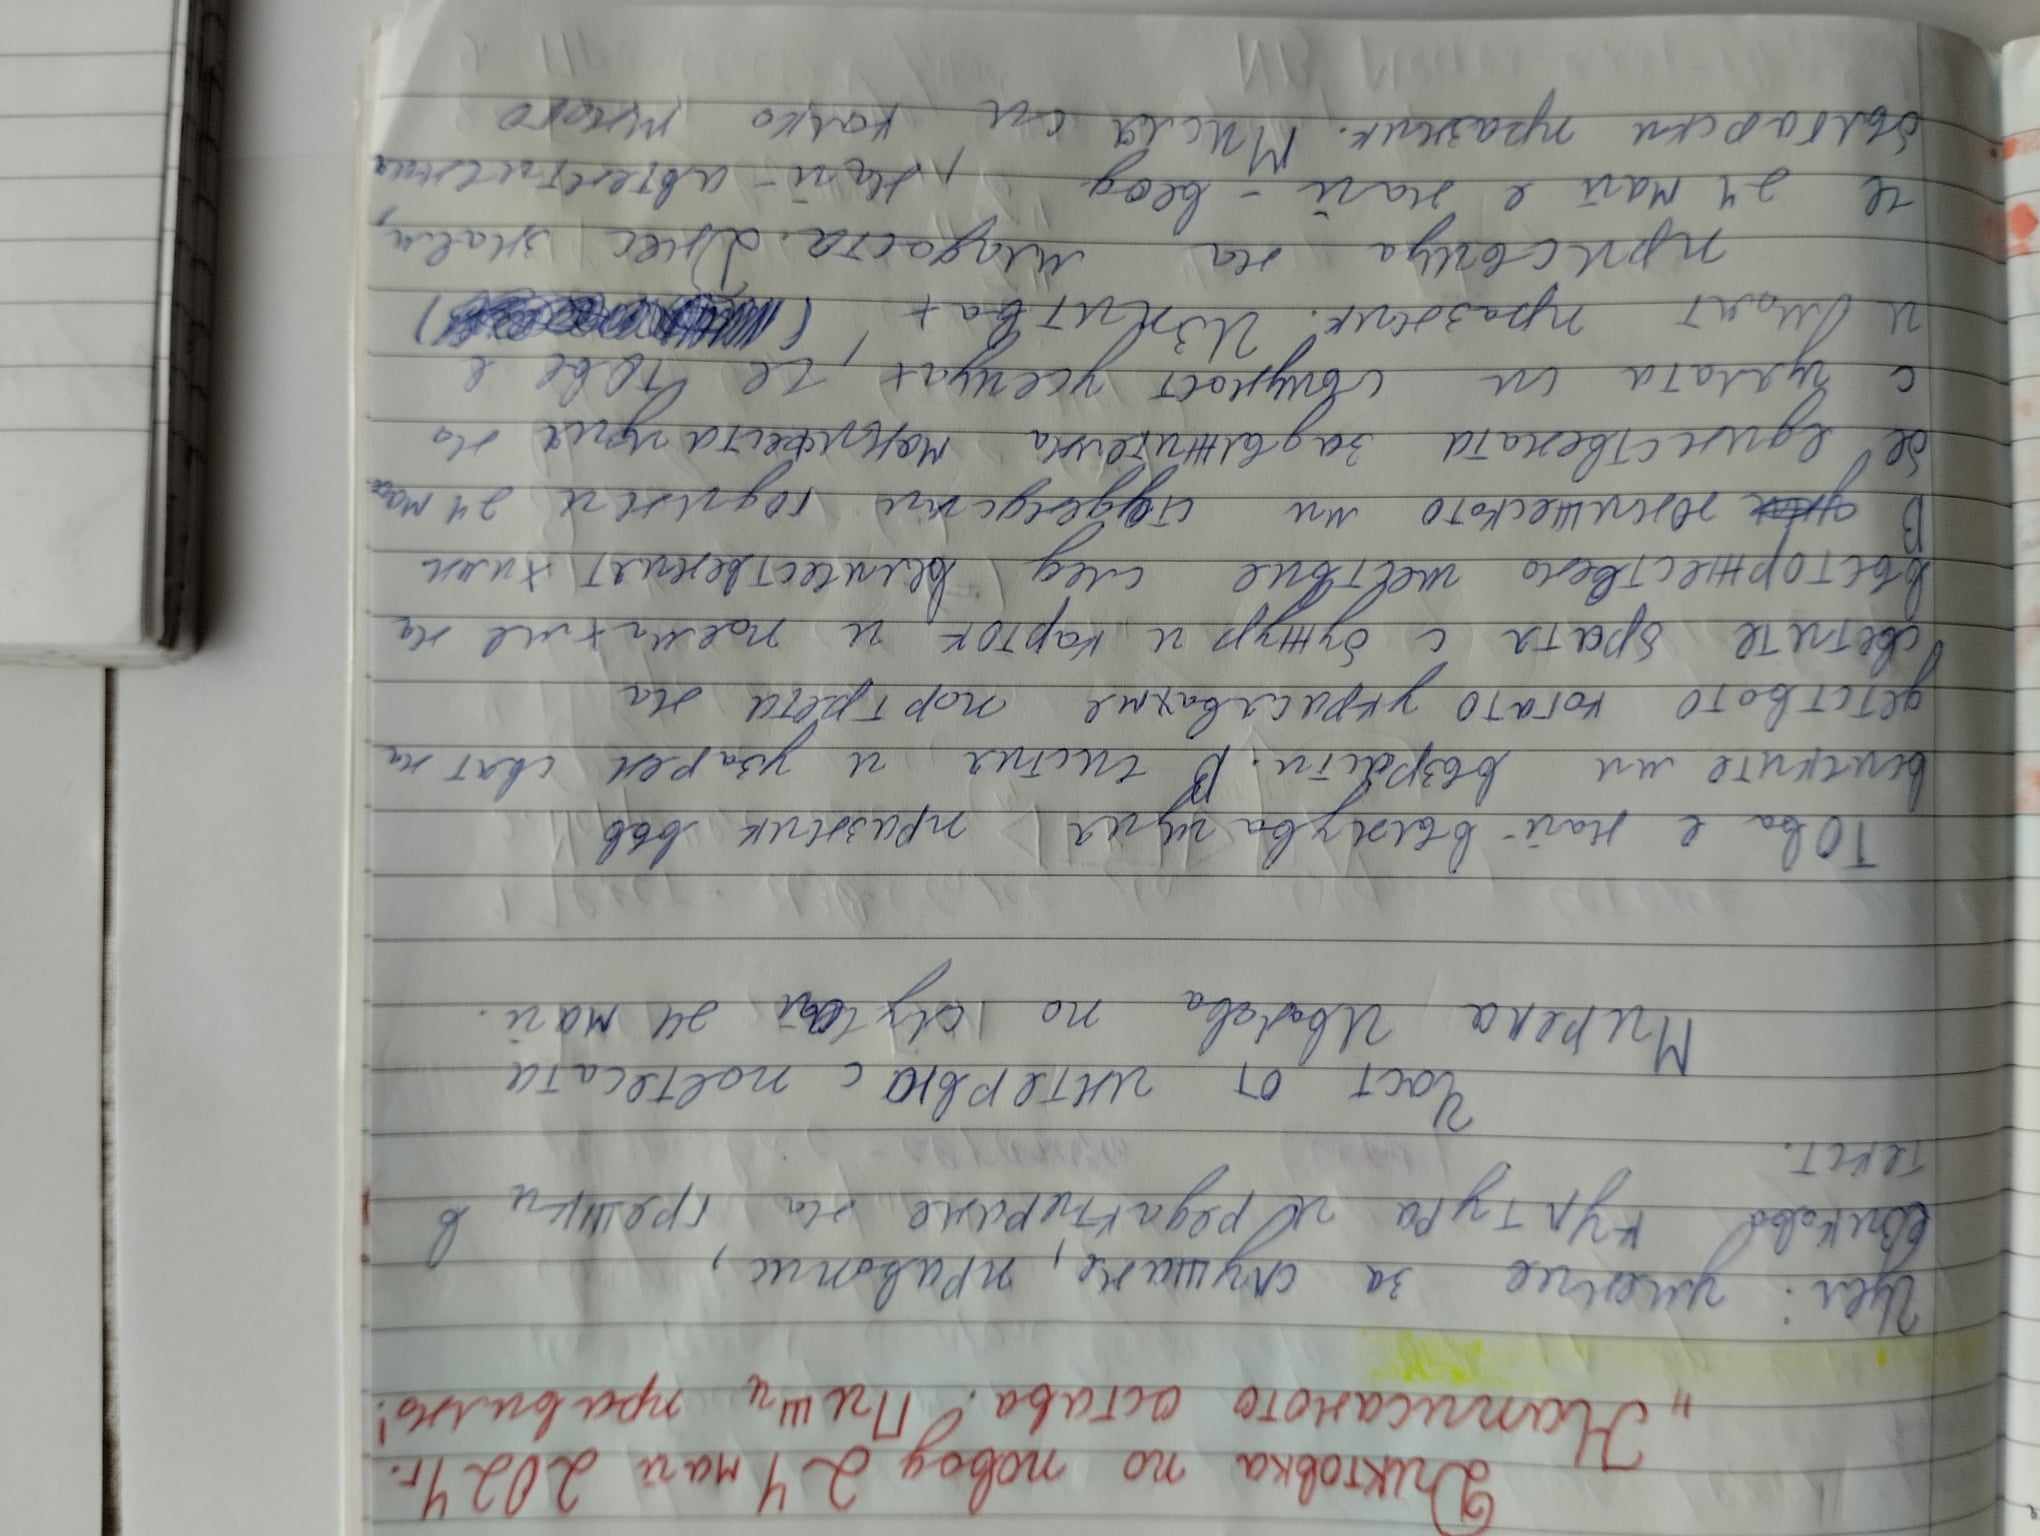 Диктовка по повод 24 май 2024г.
"Написаното остава. Пиши правилно!
Цел: умение за слушане, правопис,
езикова култура и редактиране на грешки в
текст.
Част от интервю с поетесата
Мирела Иванова по случай 24 май.
Това е най-вълнуващия празник във
всичките ми възрасти. В чистия и узарен свят на
детството когато украсявахме портрета на
светите братя с божур и картон и поемахме на
въсторжествено шествие след величествения химн
В юношеското ми следдесусния години 24 май
бе единствената задължителна манифестация на
с чиято си същност усещах, че това е
и моят празник. Изпитвах, (
присъща на младостта. Днес знаем,
че 24 май е най-вeод , най-автентичния
български празник. Мисля си колко много